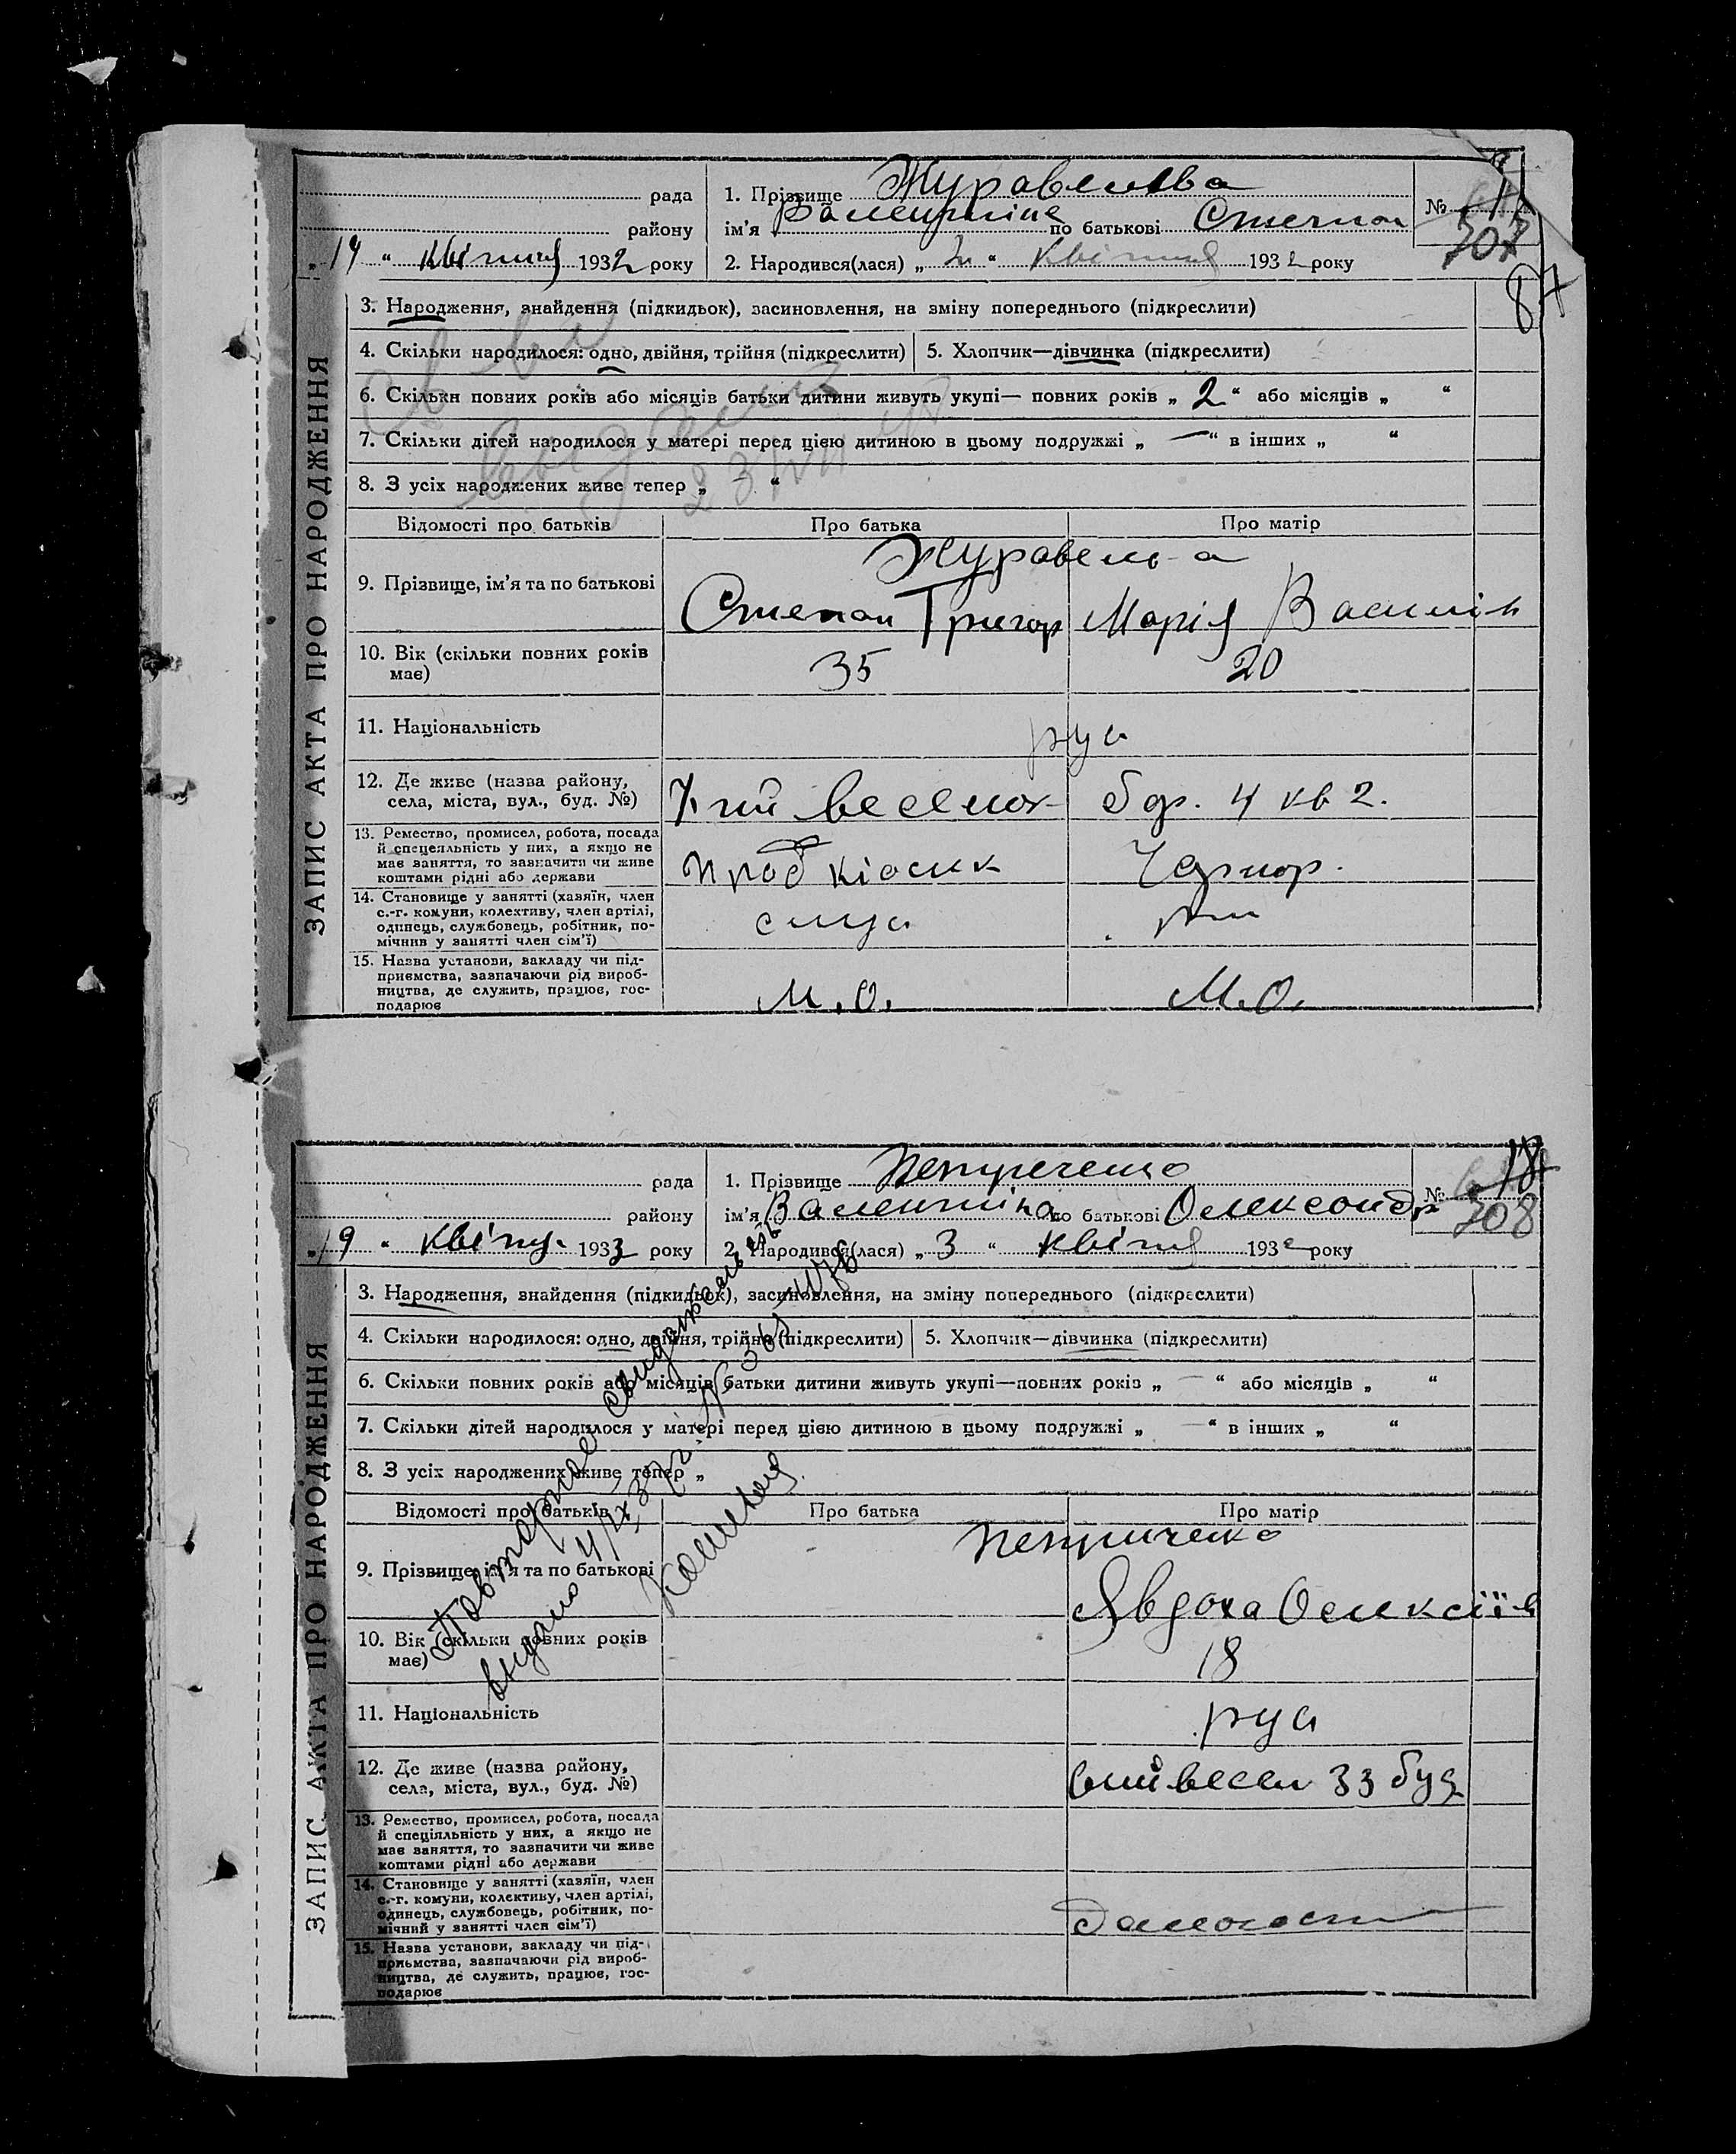 рада
району
„ 19 “ квітня 1932 року
1. Прізвище Журавльова
ім'я Валентина по батькові Степан
2. Народився(лася) „ 2 “ Квітня 1932 року
№
307
87
ЗАПИС АКТА ПРО НАРОДЖЕННЯ
3. Народження, знайдення (підкидьок), засиновлення, на зміну попереднього (підкреслити)
4. Скільки народилося: одно, двійня, трійня (підкреслити)
5. Хлопчик—дівчинка (підкреслити)
6. Скільки повних років або місяців батьки дитини живуть укупі— повних років „ 2 “ або місяців „ “
7. Скільки дітей народилося у матері перед цією дитиною в цьому подружжі „ — “ в інших „ “
8. З усіх народжених живе тепер „ “
Відомості про батьків
Про батька
Про матір
9. Прізвище, ім'я та по батькові
Степан Григор
Марія Василів
10. Вік (скільки повних років
має)
35
20
11. Національність
рус
12. Де живе (назва району,
села, міста, вул., буд. №)
буд. 4 кв 2.
13. Ремество, промисел, робота, посада
й спеціяльність у них, а якщо не
має заняття, то зазначити чи живе
коштами рідні або держави
Чернор.
14. Становище у занятті (хазяїн, член
с.-г. комуни, колективу, член артілі,
одинець, службовець, робітник, по-
мічник у занятті член сім'ї)
служ
15. Назва установи, закладу чи під-
приємства, зазначаючи рід вироб-
ництва, де служить, працює, гос-
подарює
М.О.
М.О.
рада
району
„ 19 “ квітня 1932 року
1. Прізвище Петриченко
ім'я Валентина по батькові Олександр
2. Народився(лася) „ 3 “ квітня 1932 року
№
308
ЗАПИС АКТА ПРО НАРОДЖЕННЯ
3. Народження, знайдення (підкидьок), засиновлення, на зміну попереднього (підкреслити)
4. Скільки народилося: одно, двійня, трійня (підкреслити)
5. Хлопчик—дівчинка (підкреслити)
6. Скільки повних років або місяців батьки дитини живуть укупі—повних років „ — “ або місяців „ “
7. Скільки дітей народилося у матері перед цією дитиною в цьому подружжі „ — “ в інших „ “
8. З усіх народжених живе тепер „
Повторное свидетельство
выдано
Відомості про батьків
Про батька
Про матір
9. Прізвище, ім'я та по батькові
Петриченко
Явдоха Олексіїв
10. Вік (скільки повних років
має)
18
11. Національність
рус
12. Де живе (назва району,
села, міста, вул., буд. №)
33 буд
13. Ремество, промисел, робота, посада
й спеціяльність у них, а якщо не
має заняття, то зазначити чи живе
коштами рідні або держави
14. Становище у занятті (хазяїн, член
с.-г. комуни, колективу, член артілі,
одинець, службовець, робітник, по-
мічний у занятті член сім'ї)
домогосп
15. Назва установи, закладу чи під-
приємства, зазначаючи рід вироб-
ництва, де служить, працює, гос-
подарює